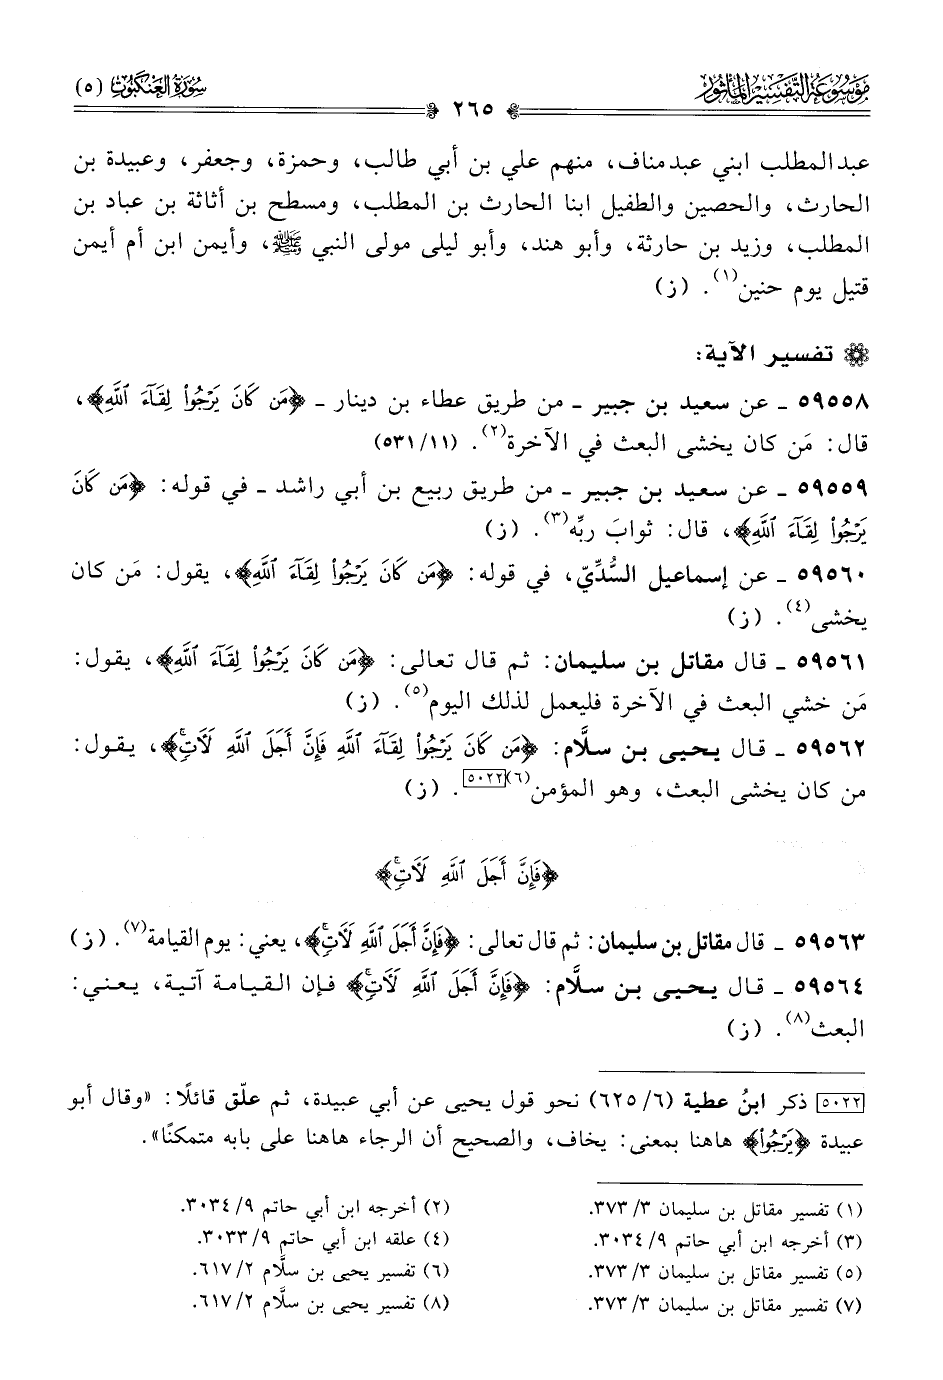 موسوعة التفسير المأثور
سورة العنكبوت (٥)
٢٦٥
عبد المطلب ابني عبد مناف، منهم علي بن أبي طالب، وحمزة، وجعفر، وعبيدة بن
الحارث، والحصين والطفيل ابنا الحارث بن المطلب، ومسطح بن أثاثة بن عباد بن
المطلب، وزيد بن حارثة، وأبو هند، وأبو ليلى مولى النبي ﷺ، وأيمن ابن أم أيمن
قتيل يوم حنين(١). (ز)
تفسير الآية:
٥٩٥٥٨ ـ عن سعيد بن جبير ـ من طريق عطاء بن دينار ـ ﴿مَن كَانَ يَرْجُواْ لِقَآءَ ٱللَّهِ﴾،
قال: مَن كان يخشى البعث في الآخرة(٢). (٥٣١/١١)
٥٩٥٥٩ ـ عن سعيد بن جبير ـ من طريق ربيع بن أبي راشد ـ في قوله: ﴿مَن كَانَ
يَرْجُواْ لِقَآءَ ٱللَّهِ﴾، قال: ثوابَ ربِّه(٣). (ز)
٥٩٥٦٠ ـ عن إسماعيل السُّدِّيّ، في قوله: ﴿مَن كَانَ يَرْجُواْ لِقَآءَ ٱللَّهِ﴾، يقول: مَن كان
يخشى(٤). (ز)
٥٩٥٦١ ـ قال مقاتل بن سليمان: ثم قال تعالى: ﴿مَن كَانَ يَرْجُواْ لِقَآءَ ٱللَّهِ﴾، يقول:
مَن خشي البعث في الآخرة فليعمل لذلك اليوم(٥). (ز)
٥٩٥٦٢ ـ قال يحيى بن سلَّام: ﴿مَن كَانَ يَرْجُواْ لِقَآءَ ٱللَّهِ فَإِنَّ أَجَلَ ٱللَّهِ لَأٓتٖۚ﴾، يقول:
من كان يخشى البعث، وهو المؤمن(٦)[٥٠٢٢]. (ز)
﴿فَإِنَّ أَجَلَ ٱللَّهِ لَأٓتٖۚ﴾
٥٩٥٦٣ ـ قال مقاتل بن سليمان: ثم قال تعالى: ﴿فَإِنَّ أَجَلَ ٱللَّهِ لَأٓتٖۚ﴾، يعني: يوم القيامة(٧). (ز)
٥٩٥٦٤ ـ قال يحيى بن سلَّام: ﴿فَإِنَّ أَجَلَ ٱللَّهِ لَأٓتٖۚ﴾ فإن القيامة آتية، يعني:
البعث(٨). (ز)
[٥٠٢٢] ذكر ابنُ عطية (٦/ ٦٢٥) نحو قول يحيى عن أبي عبيدة، ثم علّق قائلًا: «وقال أبو
عبيدة ﴿يَرْجُواْ﴾ هاهنا بمعنى: يخاف، والصحيح أن الرجاء هاهنا على بابه متمكنًا».
(١) تفسير مقاتل بن سليمان ٣/ ٣٧٣.
(٢) أخرجه ابن أبي حاتم ٩/ ٣٠٣٤.
(٣) أخرجه ابن أبي حاتم ٩/ ٣٠٣٤.
(٤) علقه ابن أبي حاتم ٩/ ٣٠٣٣.
(٥) تفسير مقاتل بن سليمان ٣/ ٣٧٣.
(٦) تفسير يحيى بن سلَّام ٢/ ٦١٧.
(٧) تفسير مقاتل بن سليمان ٣/ ٣٧٣.
(٨) تفسير يحيى بن سلَّام ٢/ ٦١٧.